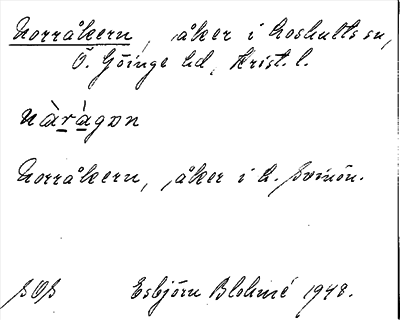 Norråkern, åker i Loshults sn,
Ö. Göinge hd, Krist. l.
nàrágon
Norråkern, åker i L. Svinön.
SOS Esbjörn Blohmé 1948.